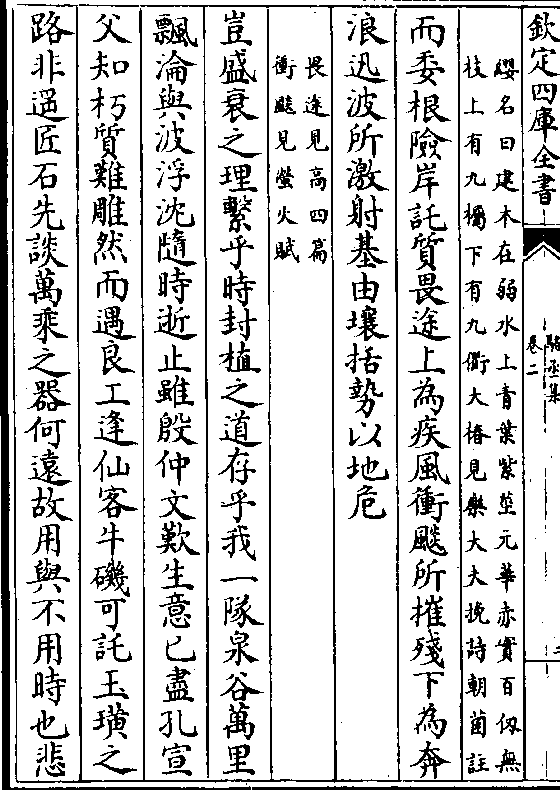 欽定四庫全書
駱丞集
卷二
纓名曰建木在弱水上青葉紫莖元華赤實百仭無
枝上有九欘下有九衢大椿見樂大夫挽詩朝菌註
而委根險岸託質畏途上為疾風衝飈所摧殘下為奔
浪迅波所激射基由壤括勢以地危
畏途見高四篇
衝飈見螢火賦
豈盛衰之理繫乎時封植之道存乎我一隊泉谷萬里
飄淪與波浮沈隨時逝止雖殷仲文歎生意已盡孔宣
父知朽質難雕然而遇良工逢仙客牛磯可託玉璜之
路非遥匠石先談萬乘之器何遠故用與不用時也悲